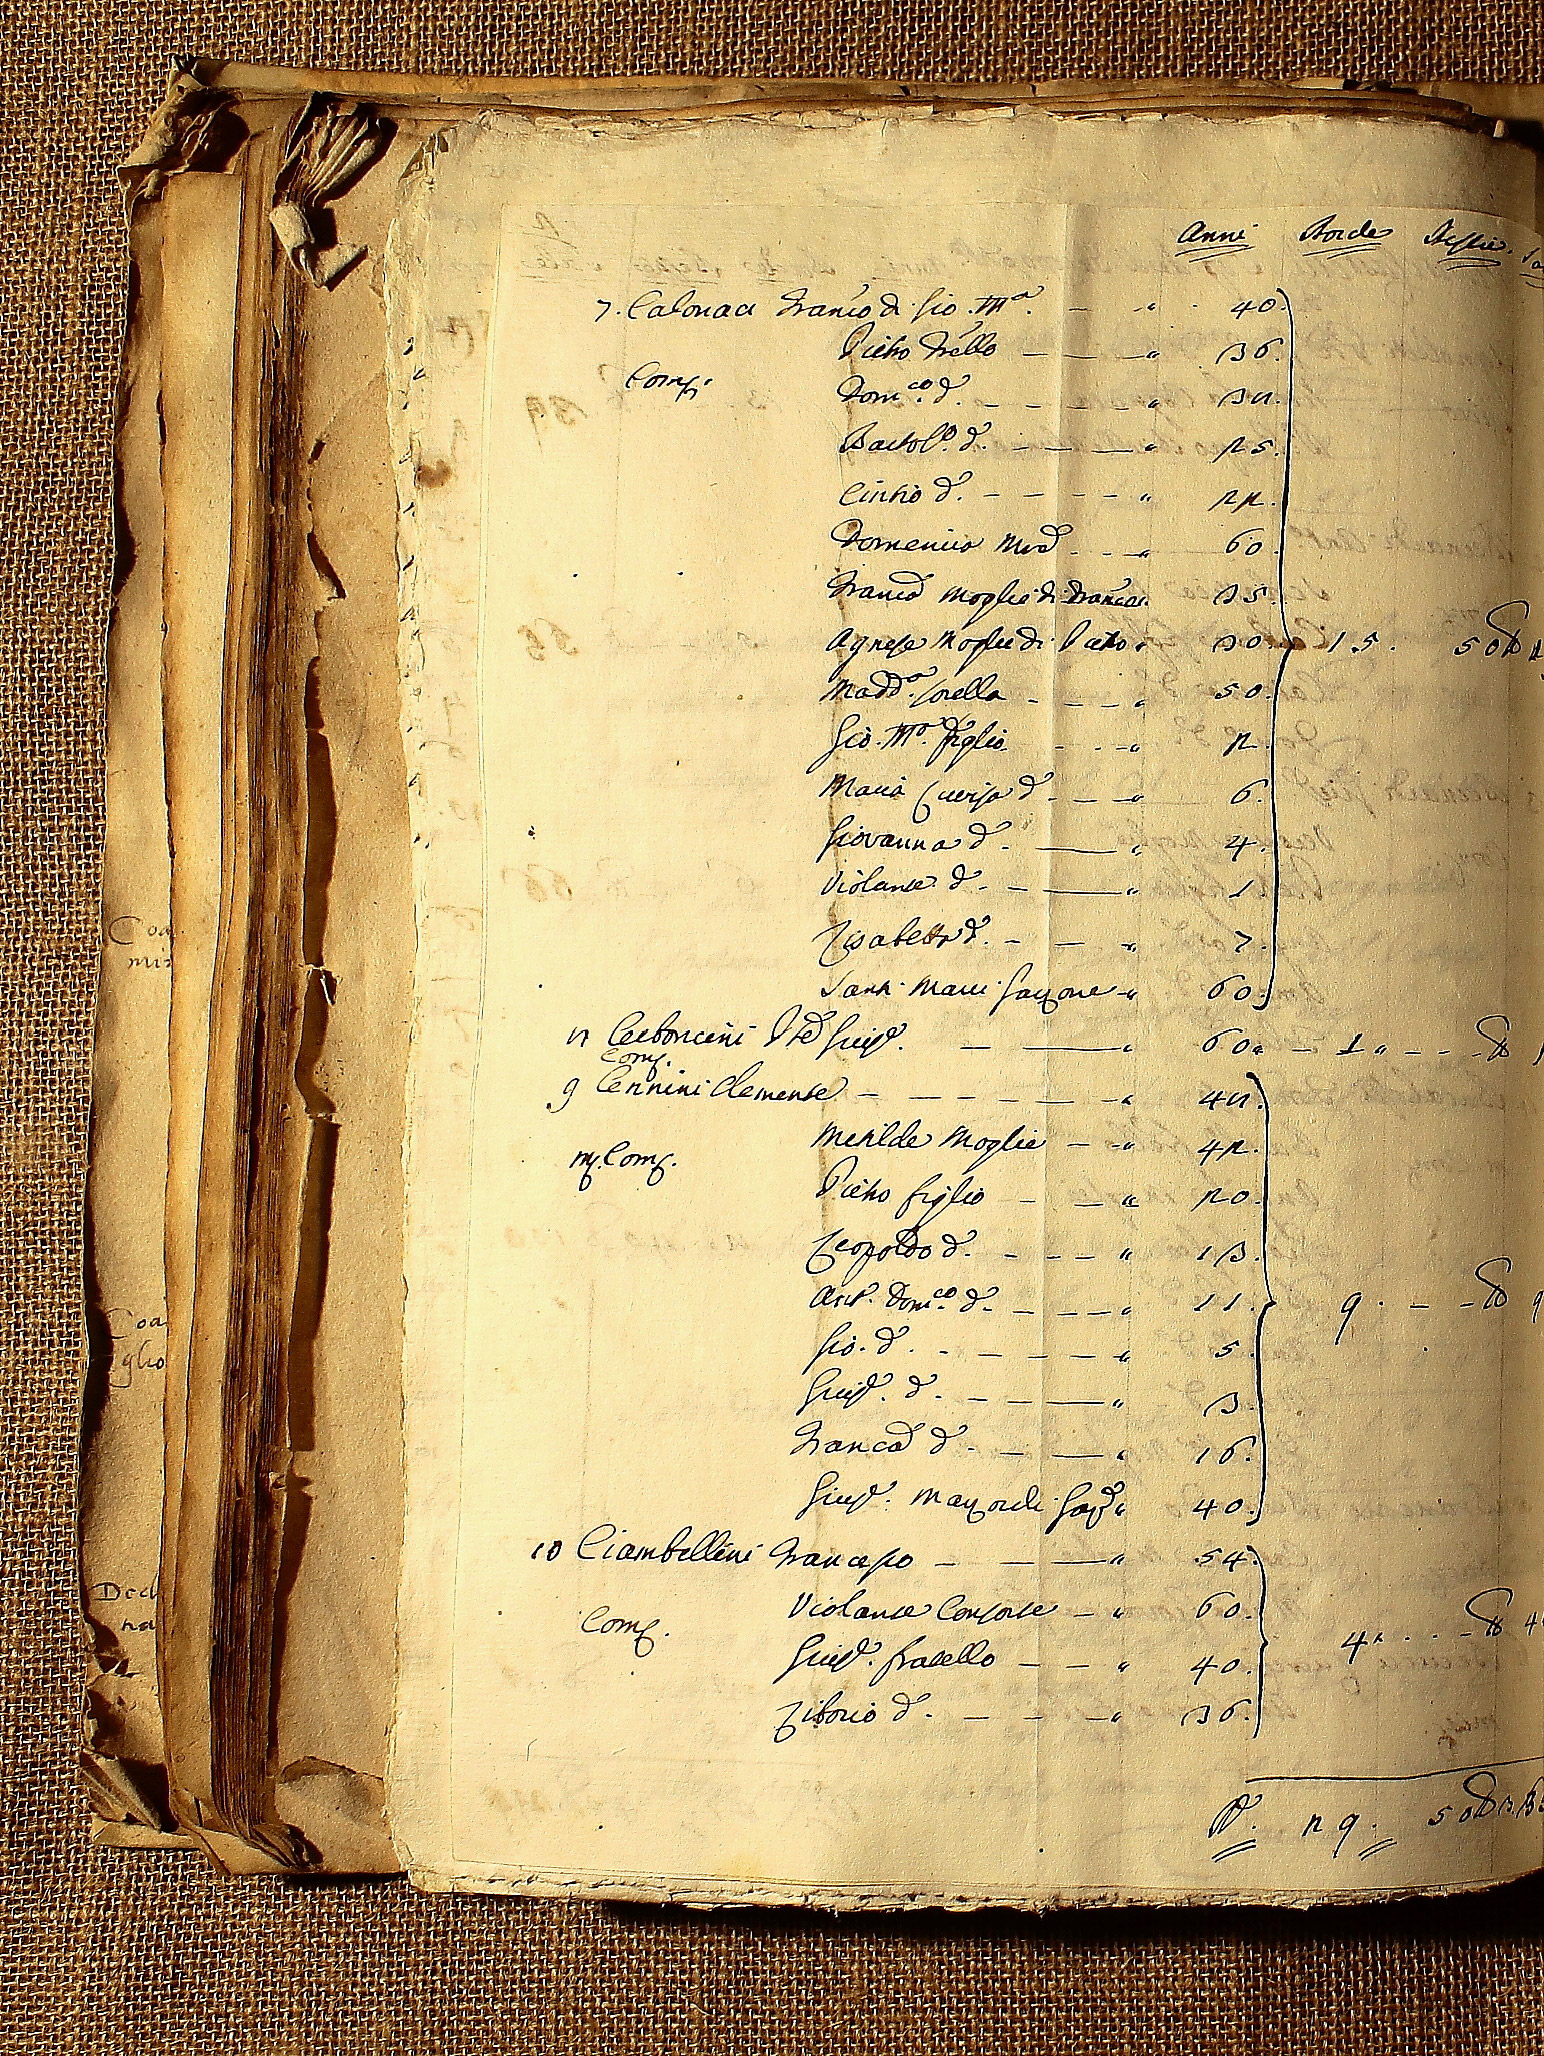 Anni Bocche Bestie
7. Calonaci Franco di Gio. Ma. 40
Pietro Frello 36
Comp.
Domco. d. 38
Bartolo. d. 25
Cintio d. 22
Domenica Mre 60
Franca Moglie di Franco 35
Agnese Moglie di Pietro 30 15. 50
Madda. Sorella 50
Gio. Ma. figlio 2
Maria d. 6
Giovanna d. 4
Violante d. 1
Lisabetta d. 7
Garzone 60
8 Cerboncini Giusе. 60 1
Comp.
9 Cennini Clemente 48
Metilde Moglie 42
Comp.
Pietro figlio 20
Leopoldo d. 13
Ant. Domco. d. 11 9
Gio. d. 5
Giuse. d. 3
Franca d. 16
Giuse. 40
10 Ciambellini Francesco 54
Violante Consorte 60
Comp. 4
Giuse. fratello 40
Liborio d. 36
29. 50
Coa
Coa
glio
na